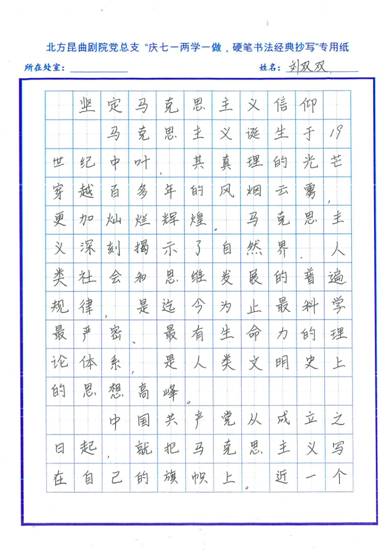 北方昆曲剧院党总支 "庆七一两学一做，硬笔书法经典抄写"专用纸
所在处室： 姓名：刘双双
坚定马克思主义信仰
马克思主义诞生于19
世纪中叶，其真理的光芒
穿越百多年的风烟云雾，
更加灿烂辉煌。马克思主
义深刻揭示了自然界、人
类社会和思维发展的普遍
规律，是迄今为止最科学
最严密、最有生命力的理
论体系，是人类文明史上
的思想高峰。
中国共产党从成立之
日起，就把马克思主义写
在自己的旗帜上。近一个